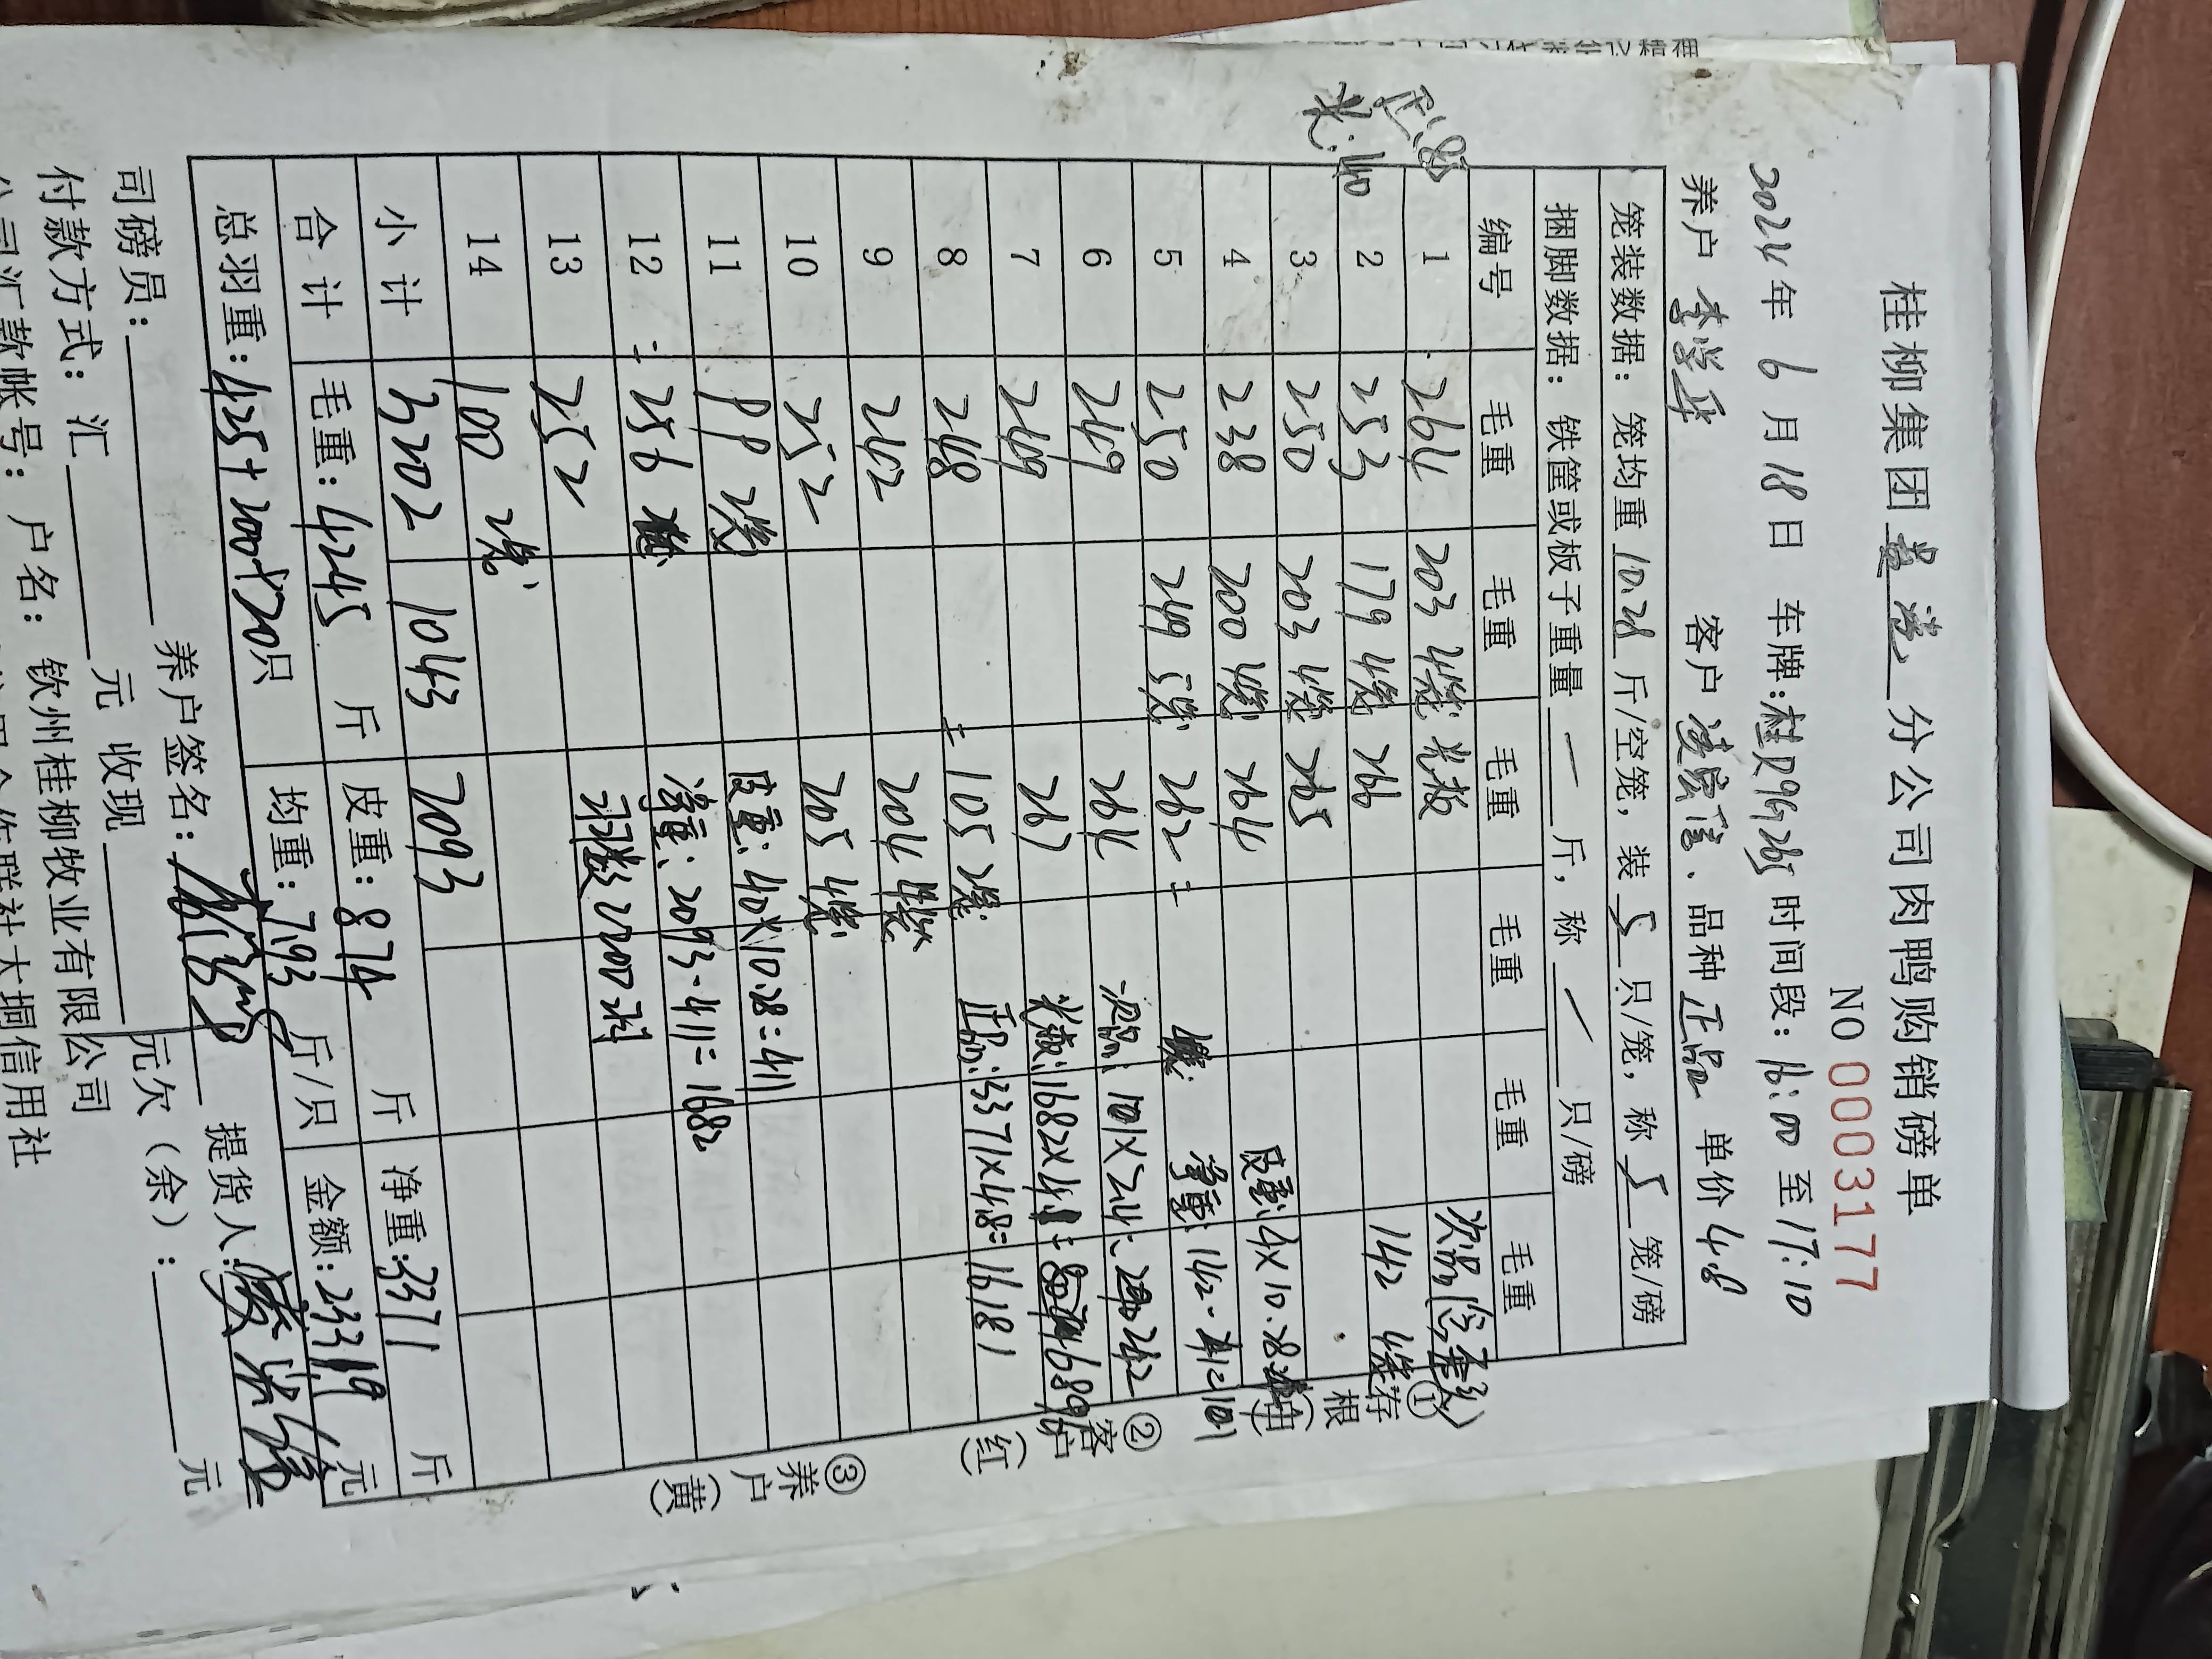 桂柳集团 分公司肉鸭购销磅单
NO 0003177
2024年 6月18日 车牌:桂D96265 时间段: 16:00至17:10
养户 李学平 客户 品种 正品 单价 4.8
笼装数据: 笼均重 10.28 斤/空笼, 装 5 只/笼, 称 5 笼/磅
捆脚数据: 铁筐或板子重量 — 斤, 称 / 只/磅
正:85
光:40
编号 毛重 毛重 毛重 毛重 毛重 毛重
1 264 203 4笼 光板 次品
2 253 179 4笼 266 142 4笼
3 250 203 4笼 265
4 238 200 4笼 264 皮重:4×10.28
5 250 249 5笼 262 4笼 净重:142-41=101
6 249 264 次品: 101×2.4= 242
7 249 267 光板:1682×4.1= 689
8 248 105 2笼 正品:3371×4.8=16181
9 242 204 4笼
10 252 205 4笼
11 99 2笼 皮重:40×10.28=411
12 256 净重: 2093-411=1682
13 252 只数:200只
14 100 2笼
小计 3202 1043 2093
合计 毛重:4245 斤 皮重:874 斤 净重:3371 斤
总羽重:425+200+20只 均重:7.93 斤/只 金额: 元
司磅员: 养户签名: 提货人:
付款方式: 汇 元 收现 元欠(余): 元
公司汇款帐号: 户名: 钦州桂柳牧业有限公司
大垌信用社
①存根
②客户(红)
③养户(黄)